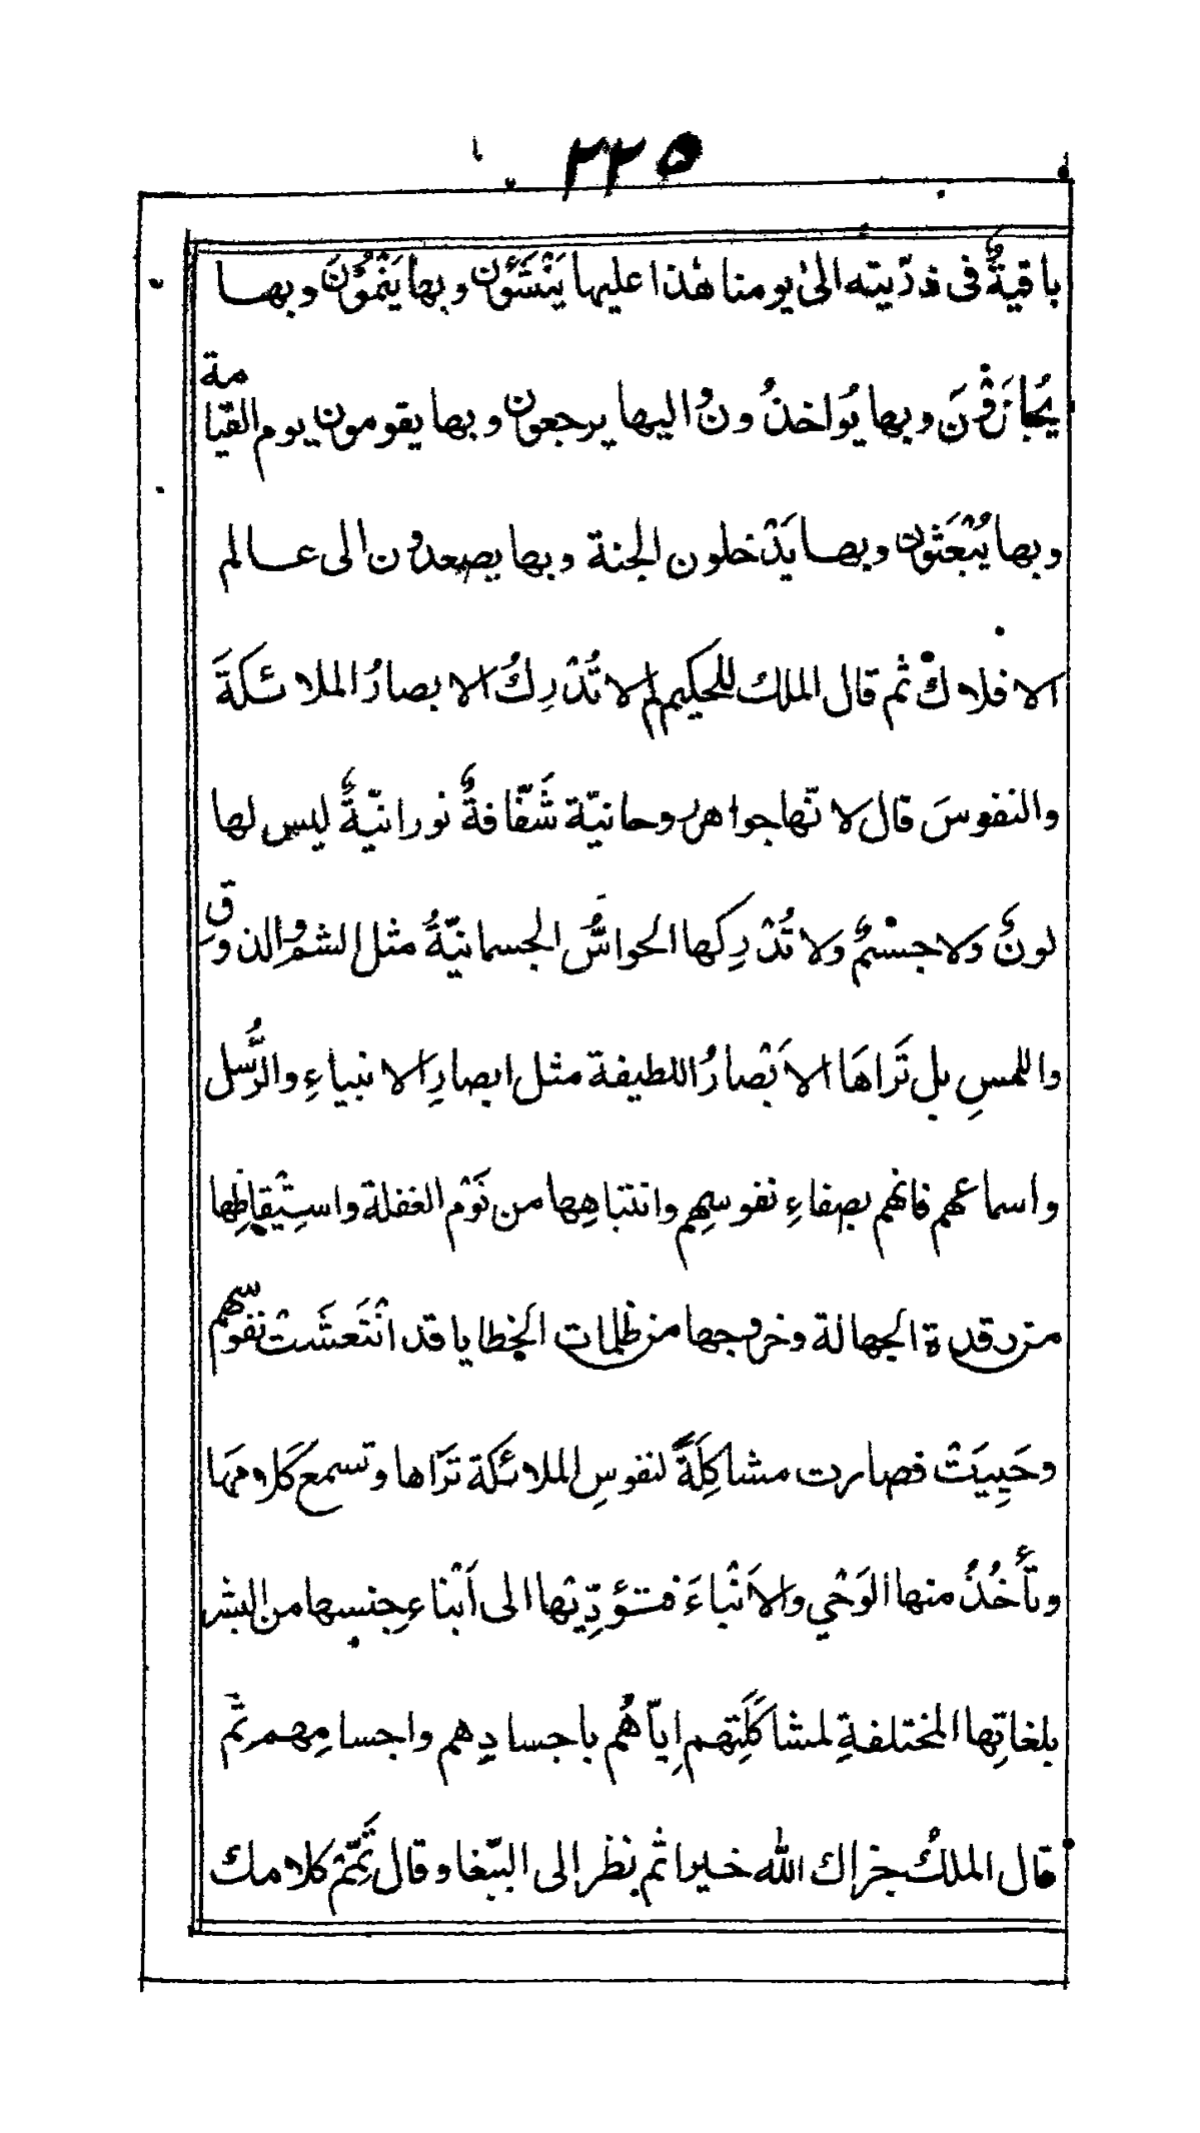 ٢٢٥
باقيةٌ فى ذرّيته الىٰ يومنا هٰذا عليها يَنْشَئون وبها يَنْمُوْنَ وبها
يُجازَوْنَ وبها يُواخذُونُ واليها يرجعون وبها يقومون يوم القيامة
وبها يُبْعَثون وبها يَدْخلون الجنة وبها يصعدون الى عالم
الافلاكْ ثم قال الملك للحكيم لِم لا تُدْرِكُ الابصارُ الملائكةَ
والنفوسَ قال لانّها جواهر روحانيّة شَفّافةٌ نورانيّةٌ ليس لها
لونٌ ولا جسْمٌ ولا تُدْرِكها الحواسُّ الجسمانيّةُ مثل الشم والذوق
واللمسِ بل تَرَاهَا الاَبْصارُ اللطيفة مثل ابصارِ الانبياءِ والرُّسل
واسماعهم فانهم بصفاءِ نفوسِهم وانتباهِها من نَوْم الغفلة واستِيْقاظِها
من رقدة الجهالة وخروجها من ظلمات الخطايا قد انْتَعشَتْ نفوسهم
وحَيِيَتْ فصارت مشاكِلَةً لنفوسِ الملائكة تَرَاها وتسمع كَلامَها
وتأخُذُ منها الوَحْي والاَنْباءَ فتؤدِّيْها الى اَبْناءِ جنسِها من البشر
بلغاتِها المختلفةِ لمشاكَلَتِهم اِيّاهُم باجسادِهم واجسامِهم ثم
قال الملكُ جزاك الله خيرا ثم نظر الى الببّغا وقال تَمِّمْ كلامك